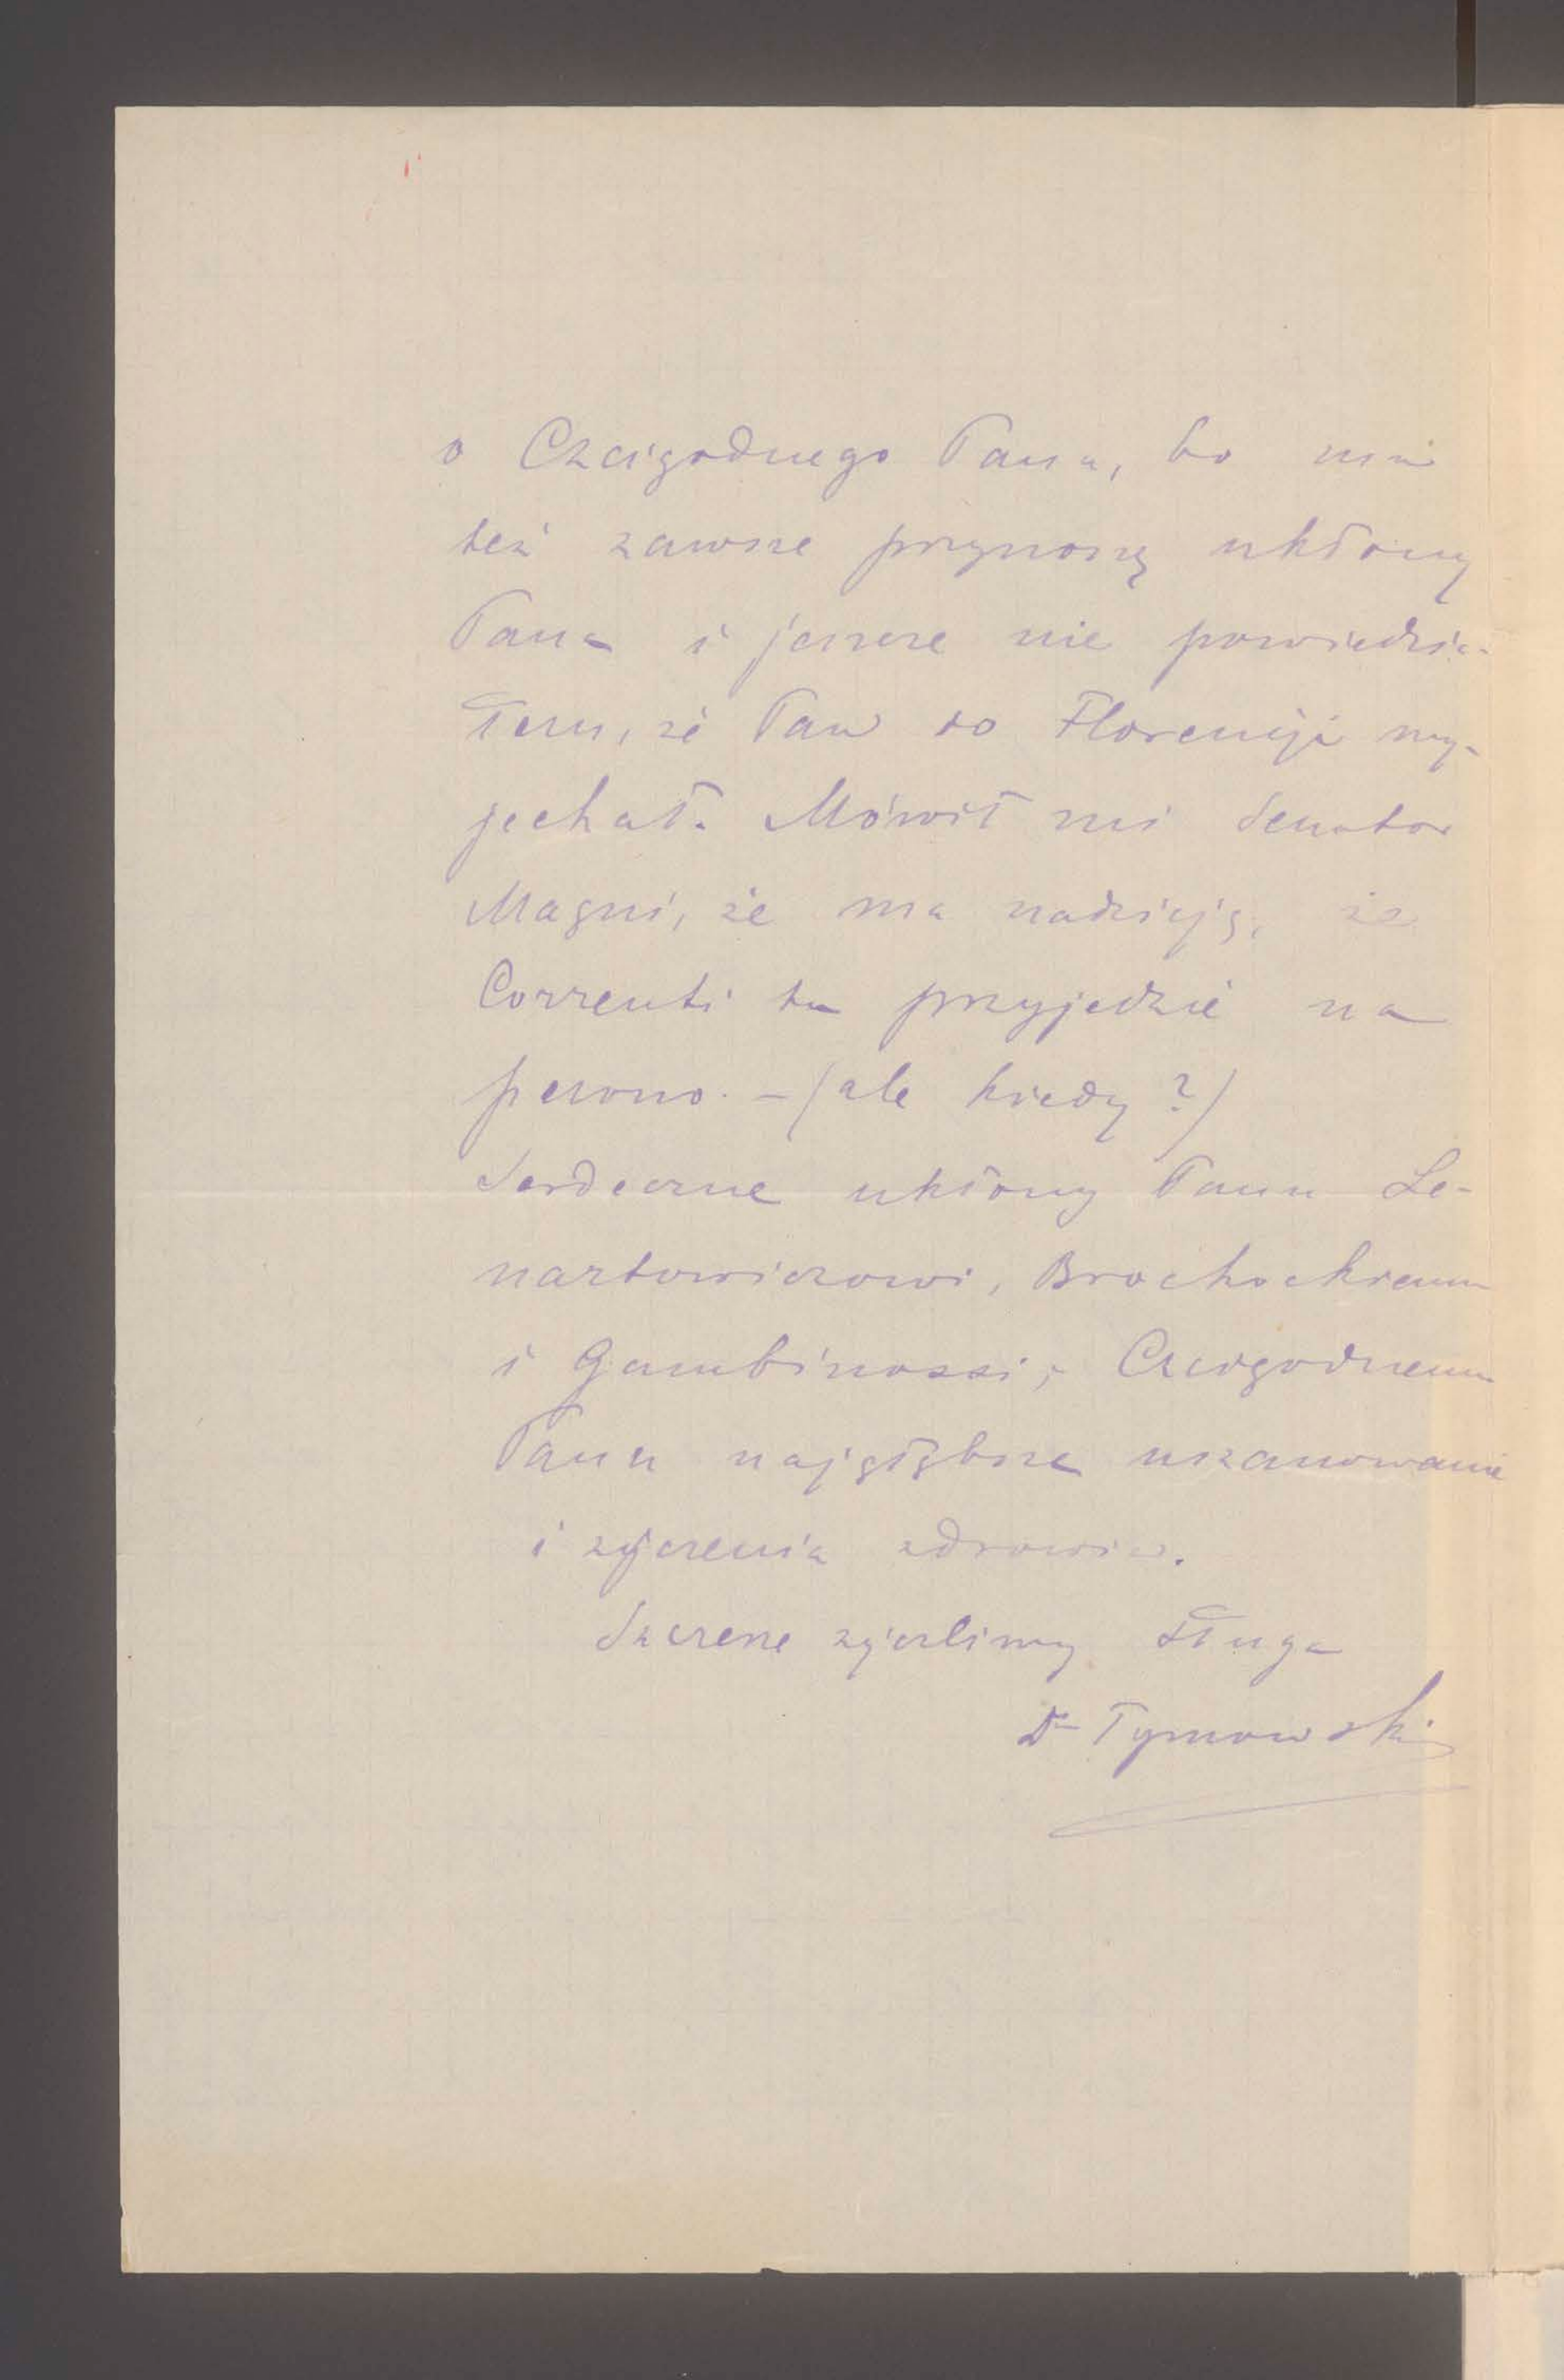 o Czcigodnego Pana, bo im
też zawsze przynoszę ukłony
Pana i jeszcze nie powiedzia-
łem, że Pan do Florencji wy-
jechał. Mówił mi Senator
Magni, że ma nadzieję, że
Correnti tu przyjedzie na
pewno. – (ale kiedy?)
Serdeczne ukłony Panu Le-
nartowiczowi, Brochockiemu
i Gambinossi; Czcigodnemu
Panu najgłębsze uszanowanie
i życzenia zdrowia.
Szczerze życzliwy sługa
Dr Tymowski